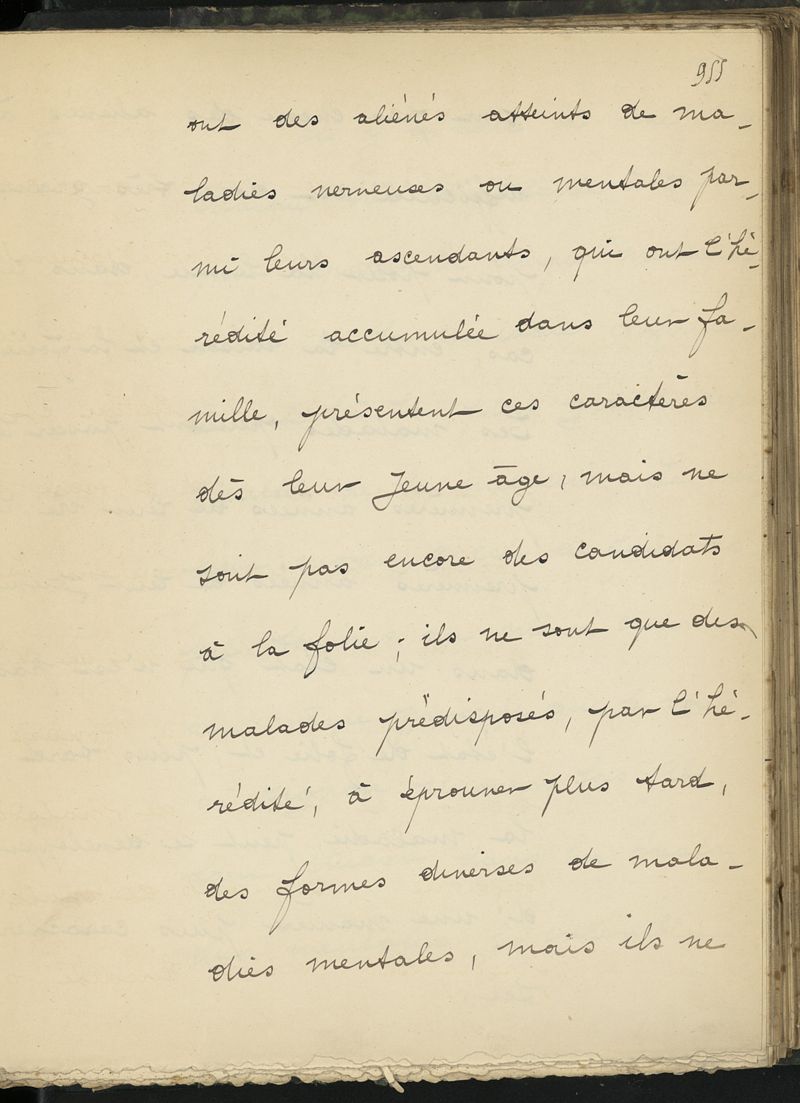 955
ont des aliénés atteints de ma-
ladies nerveuses ou mentales par-
mi leurs ascendants, qui ont l'hé-
rédité accumulée dans leur fa-
mille, présentent ces caractères
dès leur jeune âge, mais ne
sont pas encore des candidats
à la folie ; ils ne sont que des
malades prédisposés, par l'hé-
rédité, à éprouver plus tard,
des formes diverses de mala-
dies mentales, mais ils ne